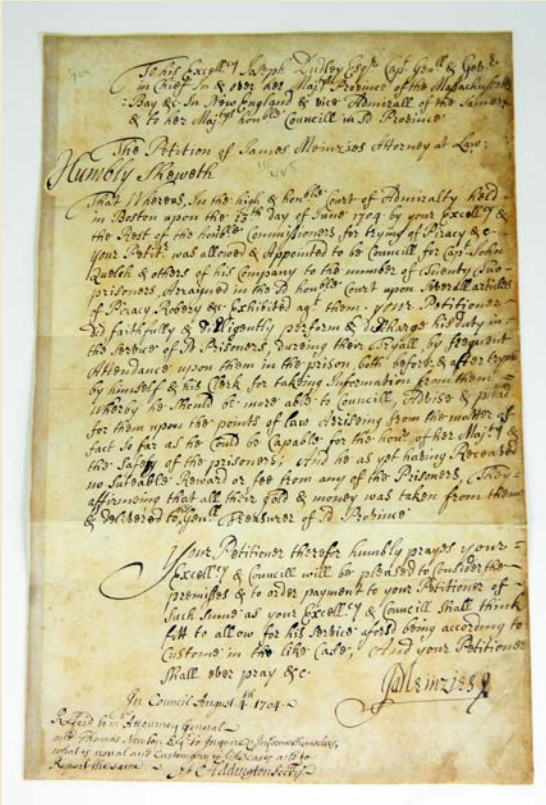 To his Excell:y Joseph Dudley Esqr. Capt. Genll & Govr.
in Chief In & over her Majtys Province of the Massachusetts
Bay &c. In New England & vice Admirall of the Same
& to her Majtys honble Councill in sd Province
The Petition of James Meinzies Attorney at Law:
Humbly Sheweth
That Whereas, In the high & honble Court of Admiralty held
in Boston upon the 13th day of June 1704 by your Excell:y &
the Rest of the honble Commissioners, for trying of Piracy &c
your Petitr. was allowed & Appointed to be Councill, for Capt. John
Quelch & others of his Company to the number of Twenty Two
prisoners, Arraigned in the sd honble Court upon Severall articles
of Piracy, Robery &c Exhibited agt. them. your Petitioner
did faithfully & diligently perform & discharge his duty in
the Service of sd Prisoners, dureing their Tryall, by frequent
Attendance upon them in the prison, both before & after tryall
by himself & his Clerk for takeing Information from them
Whereby he Should be more able to Councill, Advise & plead
for them upon the points of law Arriseing from the matter of
fact So far as he Could be Capable for the honr. of her Majty &
the Safety of the prisoners; And he as yet having Received
no Suteable Reward or fee from any of the Prisoners, They
affirmeing that all their Gold & money was taken from them
& delivered to Treasurer of sd Province
Your Petitioner therefor humbly prayes your
Excell:y & Councill will be pleased to Consider the
premises & to order payment to your Petitioner of
Such Sume as your Excell:y & Councill Shall think
fitt to allow for his Service aforsd being according to
Custome in the like Case, And your Petitioner
Shall ever pray &c.
Ja Meinzies
In Council August 4th. 1704.
Referd to mr. Attourney General
and Thomas Newton Esqr. to Inquire & Informe themselves,
what is usual and Customary in like cases and to
Report the same
Addington Secry.